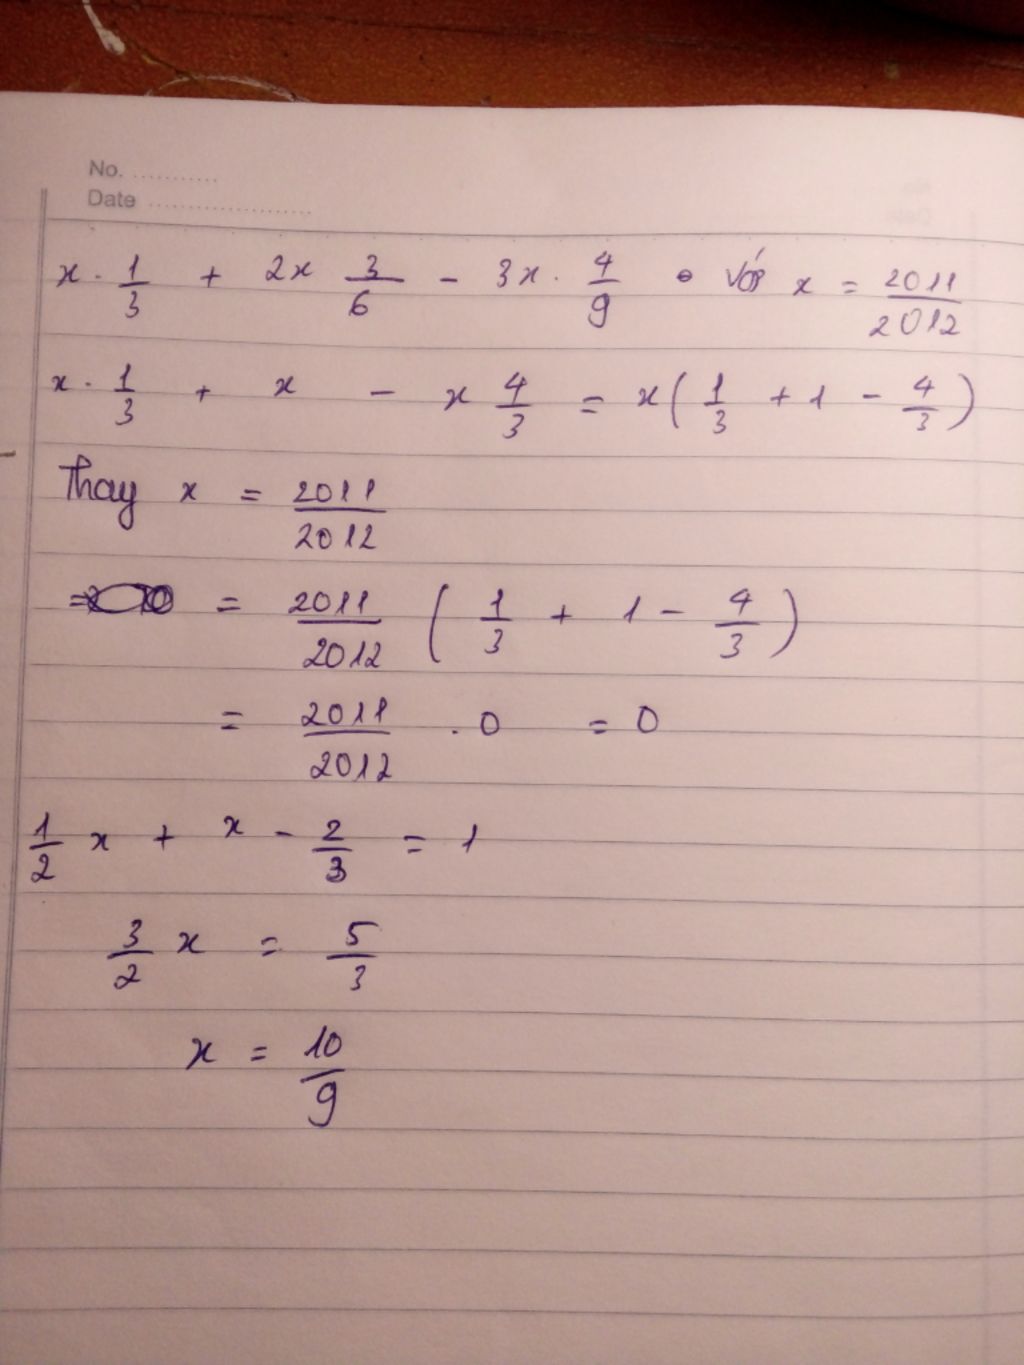 No. ...........
Date ......................
x · 1/3 + 2x 3/6 - 3x · 4/9 với x = 2011/2012
x · 1/3 + x - x 4/3 = x(1/3 + 1 - 4/3)
Thay x = 2011/2012
= 2011/2012 (1/3 + 1 - 4/3)
= 2011/2012 . 0 = 0
1/2 x + x - 2/3 = 1
3/2 x = 5/3
x = 10/9